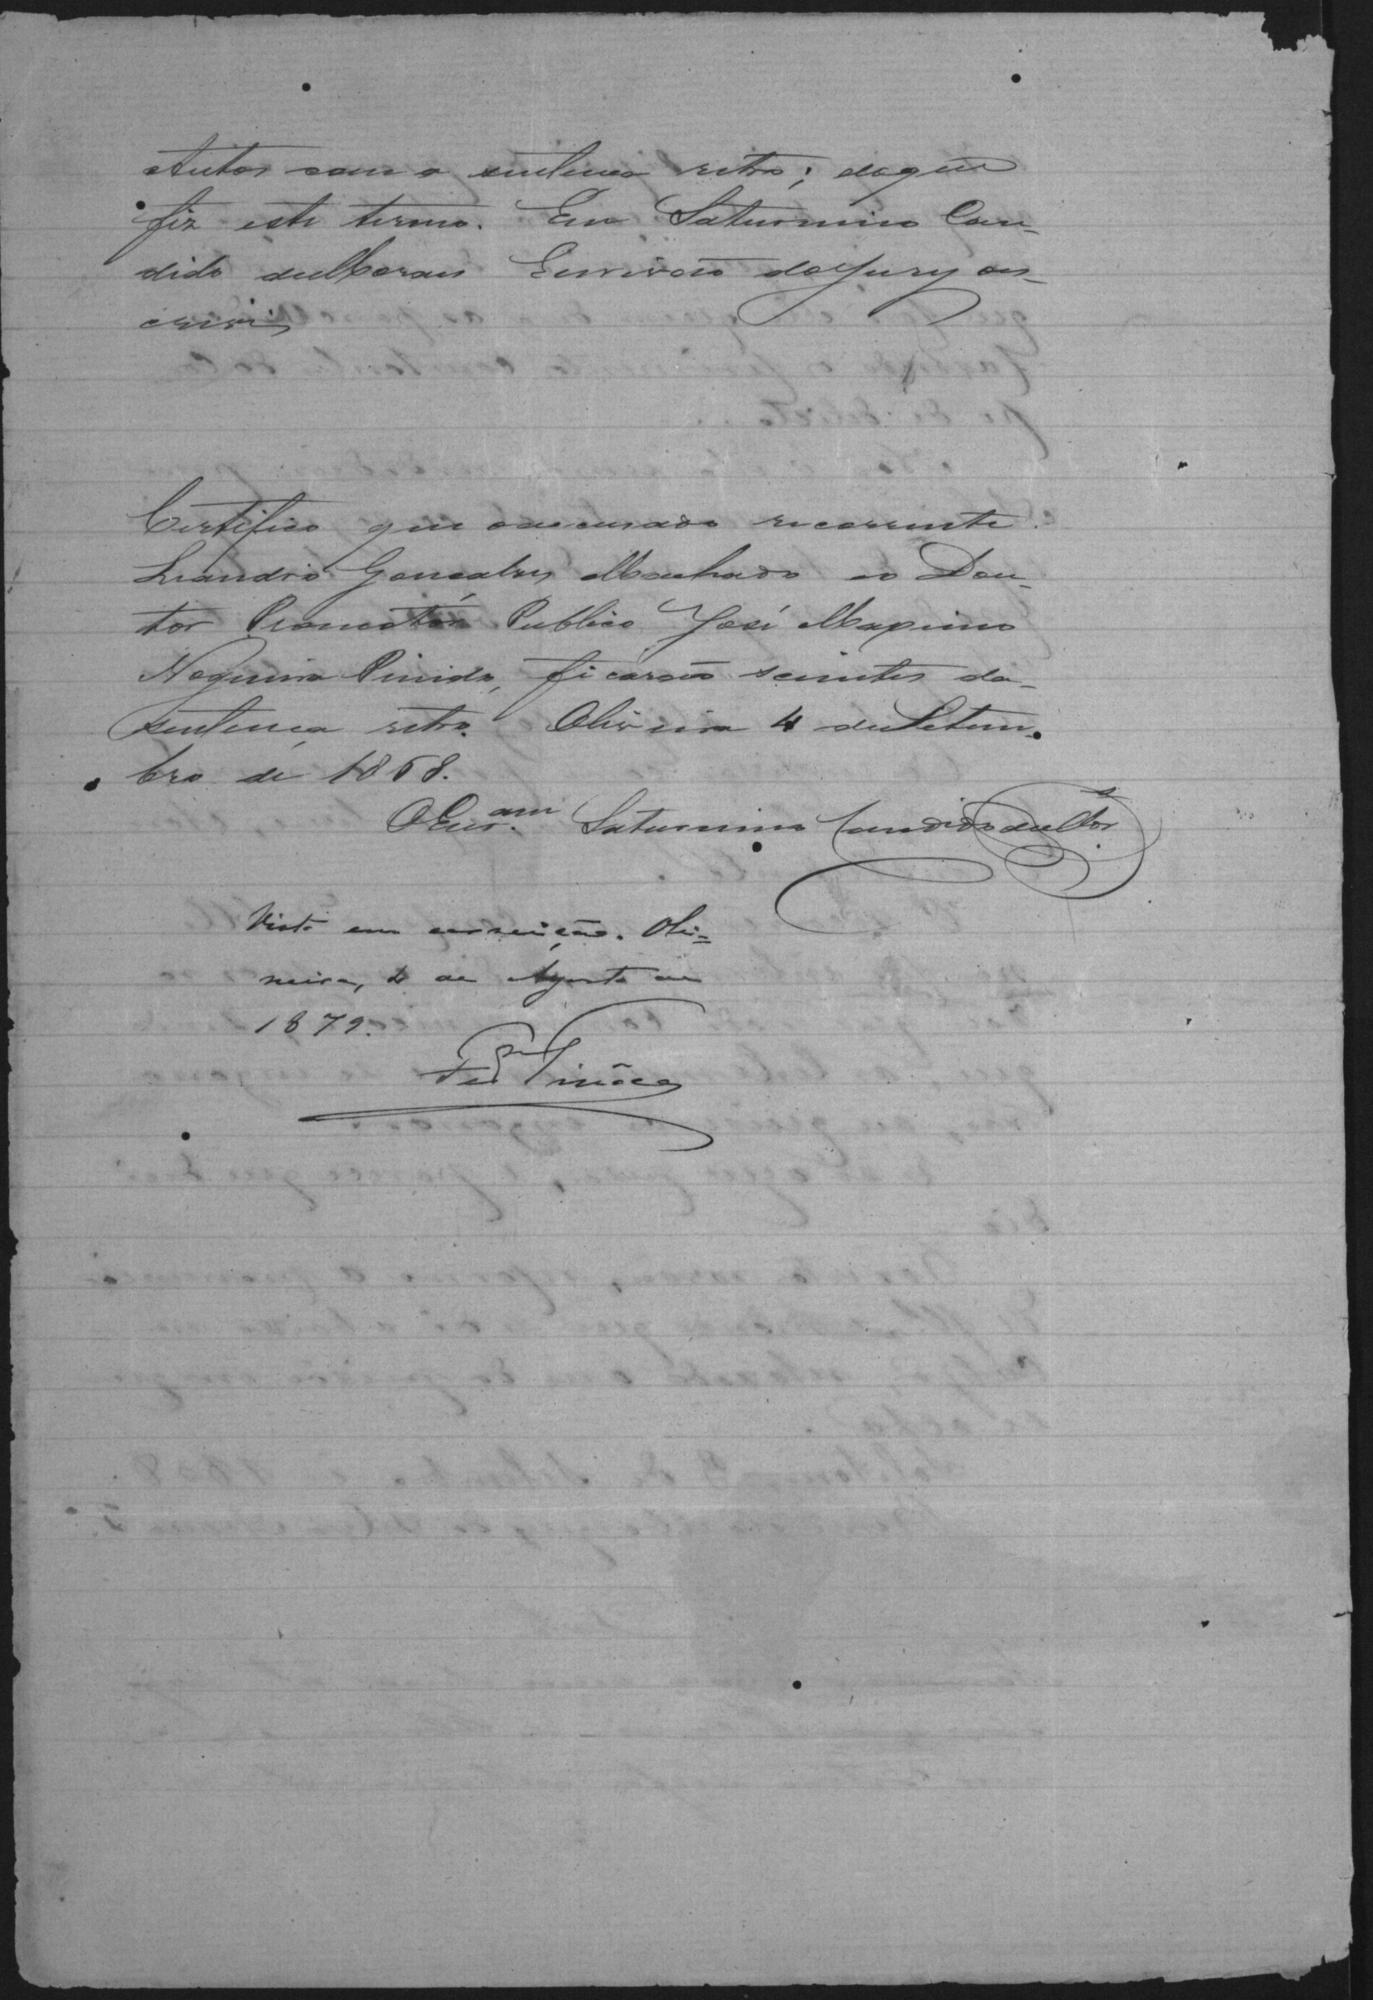 Autos com a sentença retro; do que
fiz este termo. Eu Saturnino Can-
dido de Moraes Escrivão do Jury o es-
crivi
Certifico que o accusado recorrente
Leandro Gonçalves Machado e o Dou-
tor Promotor Publico José Maximo
Nogueira Penido, ficarão scientes da
sentença retro. Oliveira 4 de Setem-
bro de 1868.
O Escr.am Saturnino Candido de Mor.s
Visto em correição. Oli-
veira, 2 de Agosto de
1879.
Tinôco